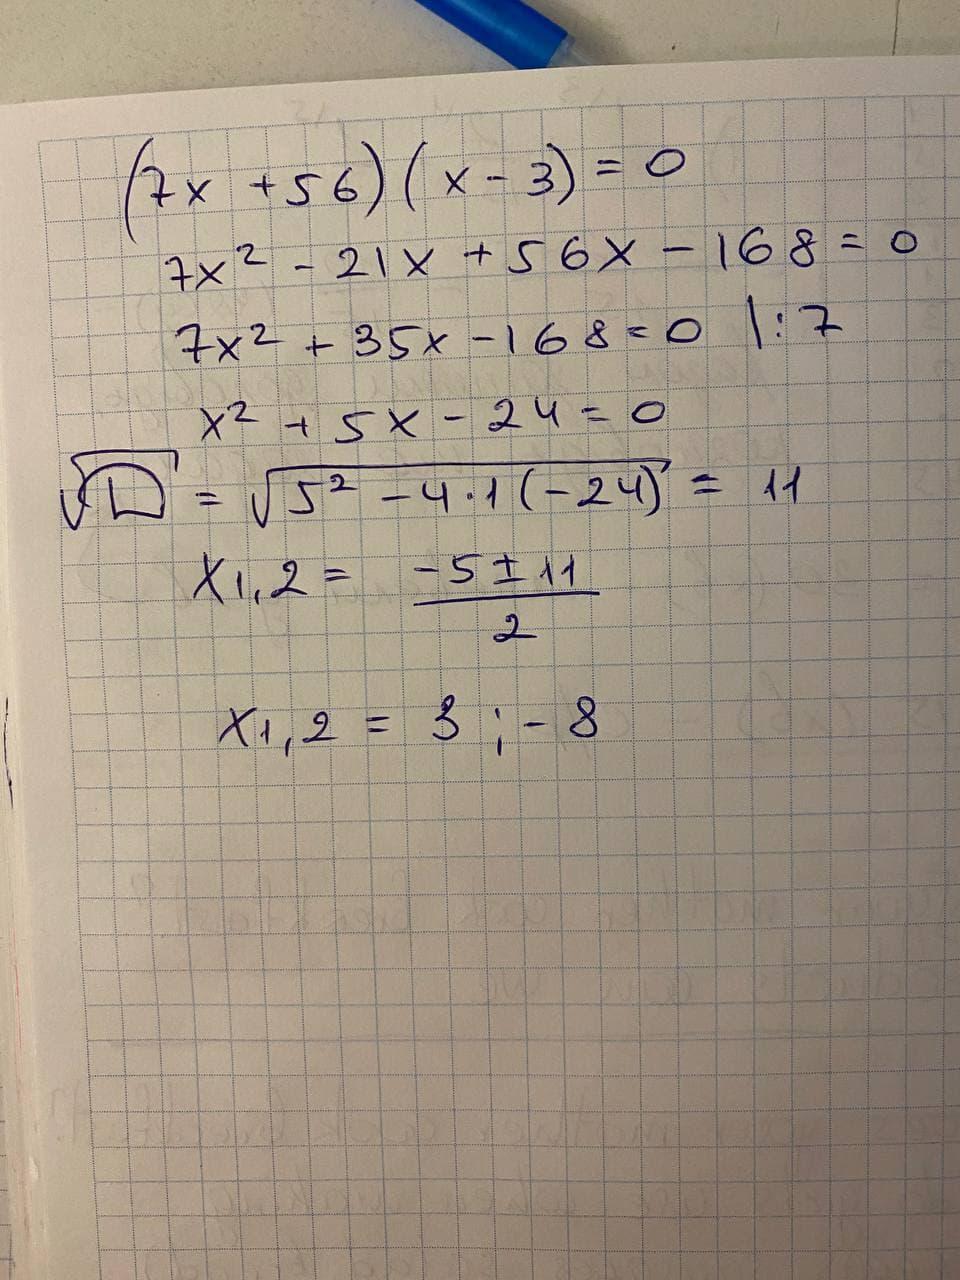 (7x + 56)(x - 3) = 0
7x² - 21x + 56x - 168 = 0
7x² + 35x - 168 = 0 |: 7
x² + 5x - 24 = 0
√D = √5² - 4·1(-24) = 11
x1,2 = -5 ± 11 / 2
x1,2 = 3 ; -8